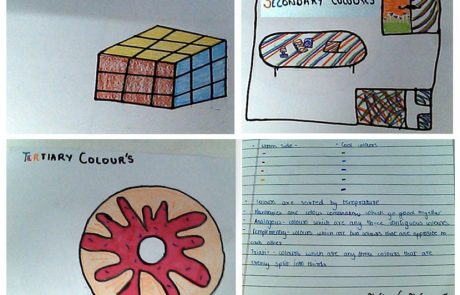 SECONDARY COLOUR'S
TERTIARY COLOUR'S
- Warm side - - Cool colours
- Colours are sorted by temperature
Harmonies are colour combinations which go good together
Analogous - colours which are any three contiguous colours
Complementry - colours which are two colours that are opposite to
each other
Triads - colours which are any three colours that are
evenly split into thirds